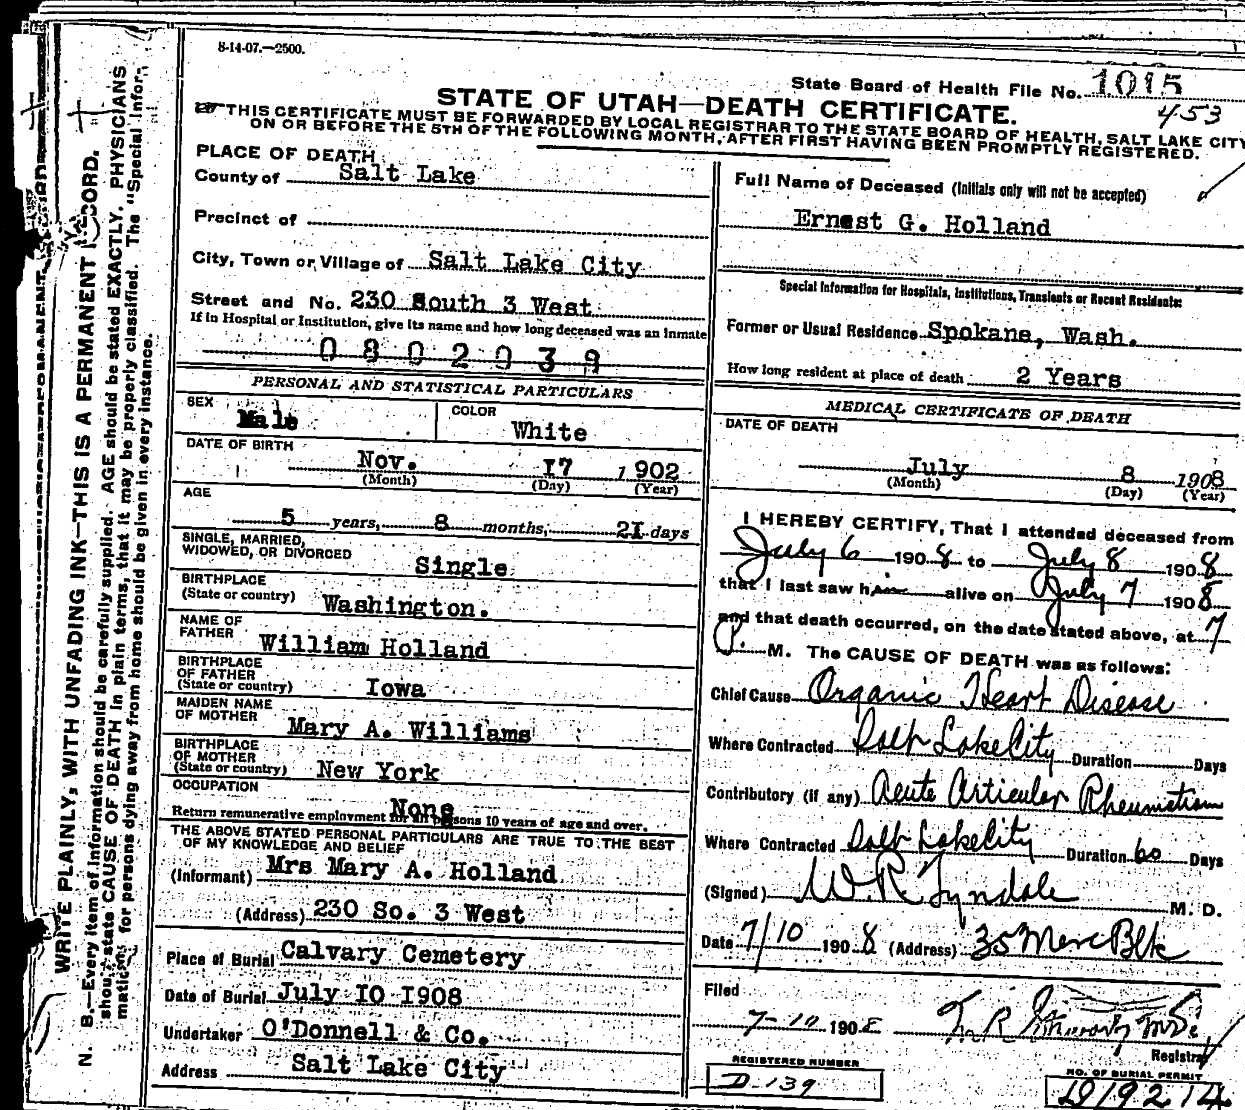 8-14-07.—2500.
State Board of Health File No. 1015
453
STATE OF UTAH—DEATH CERTIFICATE.
THIS CERTIFICATE MUST BE FORWARDED BY LOCAL REGISTRAR TO THE STATE BOARD OF HEALTH, SALT LAKE CITY
ON OR BEFORE THE 5TH OF THE FOLLOWING MONTH, AFTER FIRST HAVING BEEN PROMPTLY REGISTERED.
WRITE PLAINLY, WITH UNFADING INK—THIS IS A PERMANENT RECORD.
N. B.—Every item of information should be carefully supplied. AGE should be stated EXACTLY. PHYSICIANS
should state CAUSE OF DEATH in plain terms, that it may be properly classified. The "Special Infor-
mation" for persons dying away from home should be given in every instance.
PLACE OF DEATH
County of Salt Lake
Precinct of
City, Town or Village of Salt Lake City
Street and No. 230 South 3 West
If in Hospital or Institution, give its name and how long deceased was an inmate
0802039
PERSONAL AND STATISTICAL PARTICULARS
SEX Male
COLOR White
DATE OF BIRTH
Nov. I7 1902
(Month) (Day) (Year)
AGE
5 years, 8 months, 2I days
SINGLE, MARRIED,
WIDOWED, OR DIVORCED Single
BIRTHPLACE
(State or country) Washington.
NAME OF
FATHER William Holland
BIRTHPLACE
OF FATHER
(State or country) Iowa
MAIDEN NAME
OF MOTHER Mary A. Williams
BIRTHPLACE
OF MOTHER
(State or country) New York
OCCUPATION
None
Return remunerative employment for all persons 10 years of age and over.
THE ABOVE STATED PERSONAL PARTICULARS ARE TRUE TO THE BEST
OF MY KNOWLEDGE AND BELIEF
(Informant) Mrs Mary A. Holland
(Address) 230 So. 3 West
Place of Burial Calvary Cemetery
Date of Burial July IO I908
Undertaker O'Donnell & Co.
Address Salt Lake City
Full Name of Deceased (Initials only will not be accepted)
Ernest G. Holland
Special Information for Hospitals, Institutions, Transients or Recent Residents:
Former or Usual Residence Spokane, Wash.
How long resident at place of death 2 Years
MEDICAL CERTIFICATE OF DEATH
DATE OF DEATH
July 8 1908
(Month) (Day) (Year)
I HEREBY CERTIFY, That I attended deceased from
July 6 1908 to July 8 1908
that I last saw him alive on July 7 1908
and that death occurred, on the date stated above, at 7
P. M. The CAUSE OF DEATH was as follows:
Chief Cause Organic Heart Disease
Where Contracted Salt Lake City Duration Days
Contributory (if any) Acute Articular Rheumatism
Where Contracted Salt Lake City Duration 60 Days
(Signed) W. R. Tyndale M. D.
Date 7/10 1908 (Address) 35 Merc Blk
Filed
7-10 1908
Registrar
REGISTERED NUMBER
D-139
NO. OF BURIAL PERMIT
D19214